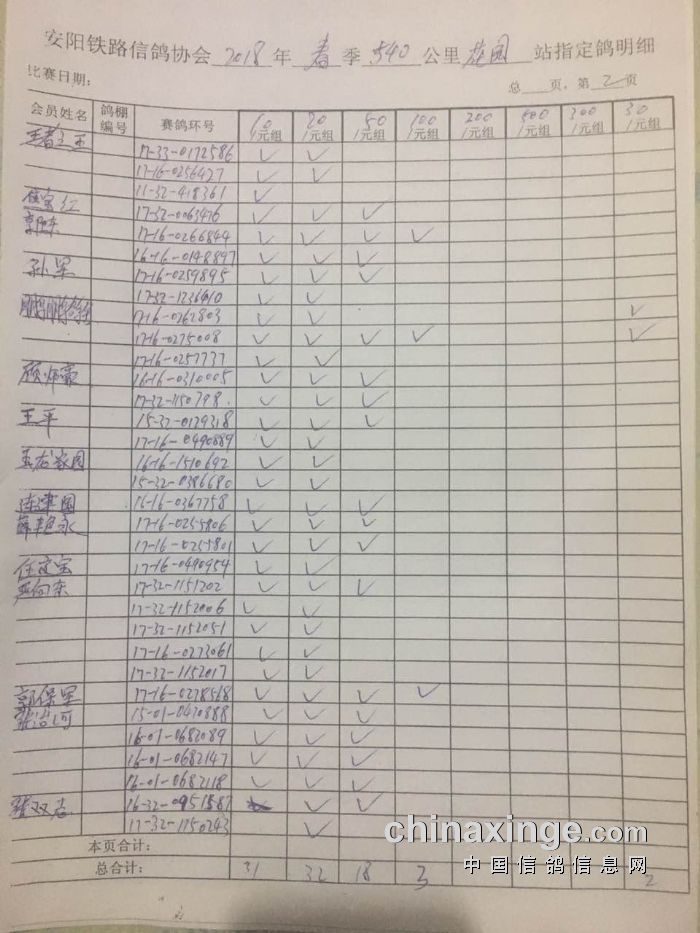 安阳铁路信鸽协会 2018 年 春 季 540 公里 花园 站指定鸽明细
比赛日期： 总 页，第 2 页
会员姓名 鸽棚编号 赛鸽环号 10/元组 20/元组 50/元组 100/元组 200/元组 500/元组 300/元组 30/元组
王者之王 17-33-0172586 ✓ ✓
17-16-0256427 ✓ ✓
11-32-418361 ✓
17-32-0063476 ✓ ✓ ✓
17-16-0266844 ✓ ✓ ✓ ✓
16-16-0148897 ✓ ✓ ✓
孙军 17-16-0259895 ✓ ✓ ✓
17-32-1236610 ✓ ✓
17-16-0262803 ✓ ✓ ✓
17-16-0275008 ✓ ✓ ✓ ✓ ✓
17-16-0257737 ✓ ✓
顾师豪 16-16-0310005 ✓ ✓ ✓
17-32-1150798 ✓ ✓ ✓
王平 15-32-0129318 ✓ ✓ ✓
17-16-0490889 ✓ ✓
16-16-1510692 ✓ ✓
15-32-0386680 ✓ ✓
连津国 16-16-0367758 ✓ ✓ ✓
薛艳永 17-16-0255806 ✓ ✓ ✓
17-16-0255801 ✓ ✓ ✓
任文宝 17-16-0490954 ✓ ✓
严向东 17-32-1151202 ✓ ✓ ✓
17-32-1152006 ✓ ✓
17-32-1152051 ✓ ✓
17-16-0273061 ✓ ✓
17-32-1152017 ✓ ✓
郭保军 17-16-0278518 ✓ ✓ ✓ ✓
张治河 15-01-0470888 ✓ ✓ ✓
16-01-0682089 ✓ ✓ ✓
16-01-0682147 ✓ ✓ ✓
16-01-0682118 ✓ ✓ ✓
张双志 16-32-0951587 ✓ ✓
17-32-1150243 ✓
本页合计：
总合计： 31 32 18 3 2
chinaxinge.com
中国信鸽信息网